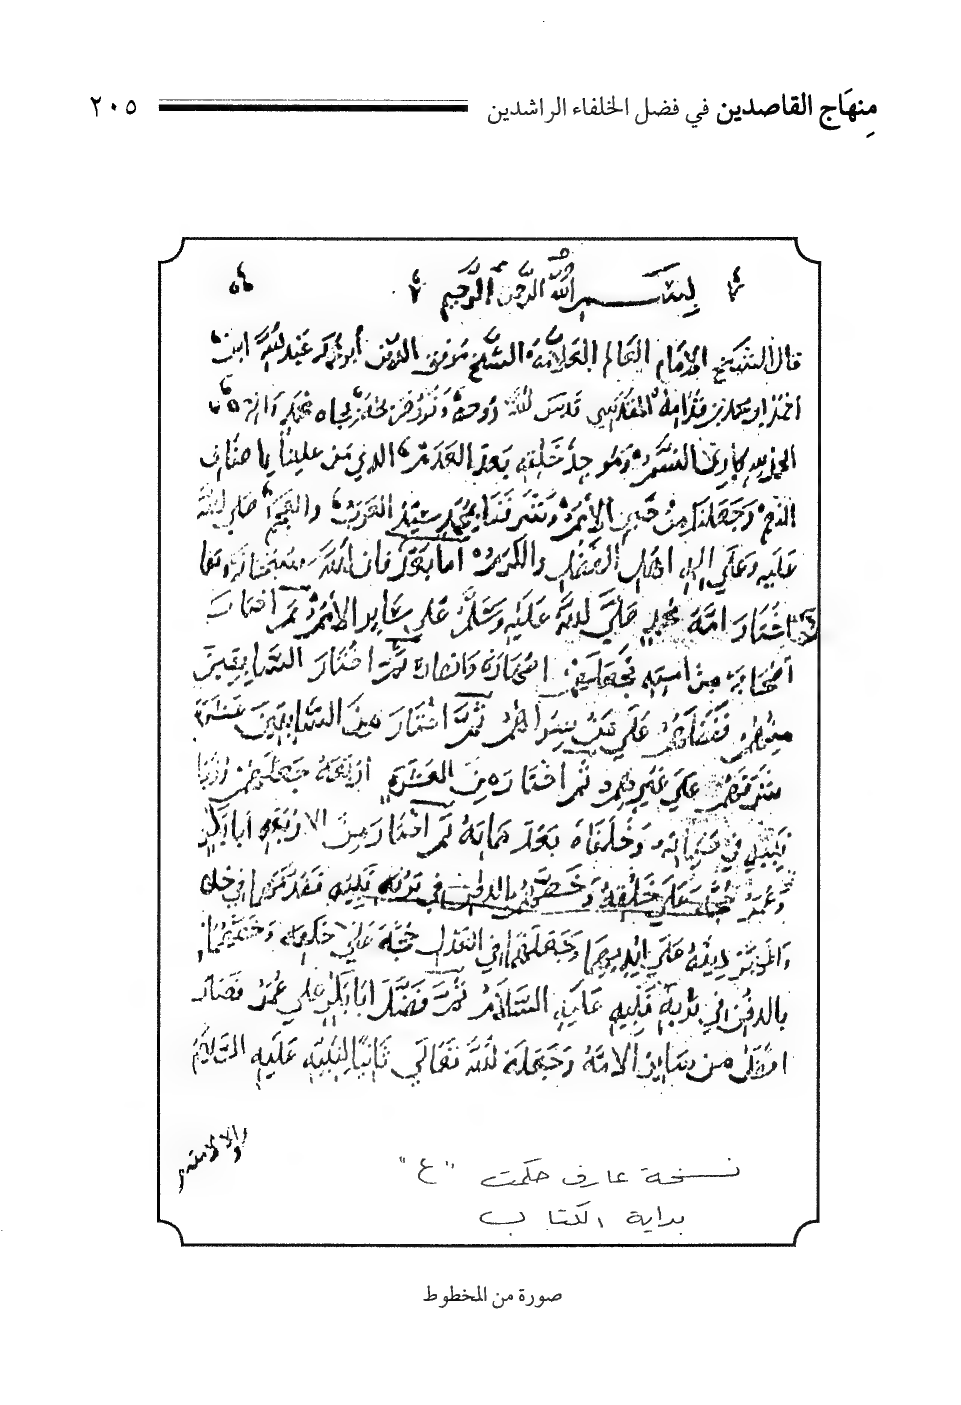 مِنهَاج القاصدين في فضل الخلفاء الراشدين ٢٠٥
بسم الله الرحمن الرحيم
قال الشيخ الامام العالم العلامة الشيخ موفق الدين ابو عبد الله ابن
احمد بن محمد بن قدامة المقدسي قدس الله روحه ونور ضريحه بجاه محمد واله
الحمد لله بارئ النسم وموجد خلقه بعد العدم الذي من علينا باصناف
النعم وجعلنا من خير الأمم وشرفنا بمحمد سيد العرب والعجم صلى الله
عليه وعلى اله اهل الفضل والكرم اما بعد فان الله سبحانه وتعا
اختار امة محمد صلى الله عليه وسلم على سائر الأمم ثم اختار
اصحابه من امته فجعلهم اصهاره وانصاره ثم اختار السابقين
منهم ففضلهم على من سواهم ثم اختار من السابقين عشرة
شرفهم على غيرهم ثم اختار من العشرة اربعة جعلهم
نبيه في حياته وخلفاه بعد مماته ثم اختار من الاربعة ابا بكر
وعمر على خلقه وخصهم بالدفن في تربة نبيه فقدمهما في
دينه على ايديهما وجعلهما في العدل حجة على خلقه وخصهما
بالدفن في تربة نبيه عليه السلام ثم فضل ابا بكر على عمر فصار
افضل من سائر الامة وجعله الله تعالى ثانيا لنبيه عليه السلام
نسخة عارف حكمت "ع"
بداية الكتاب
صورة من المخطوط